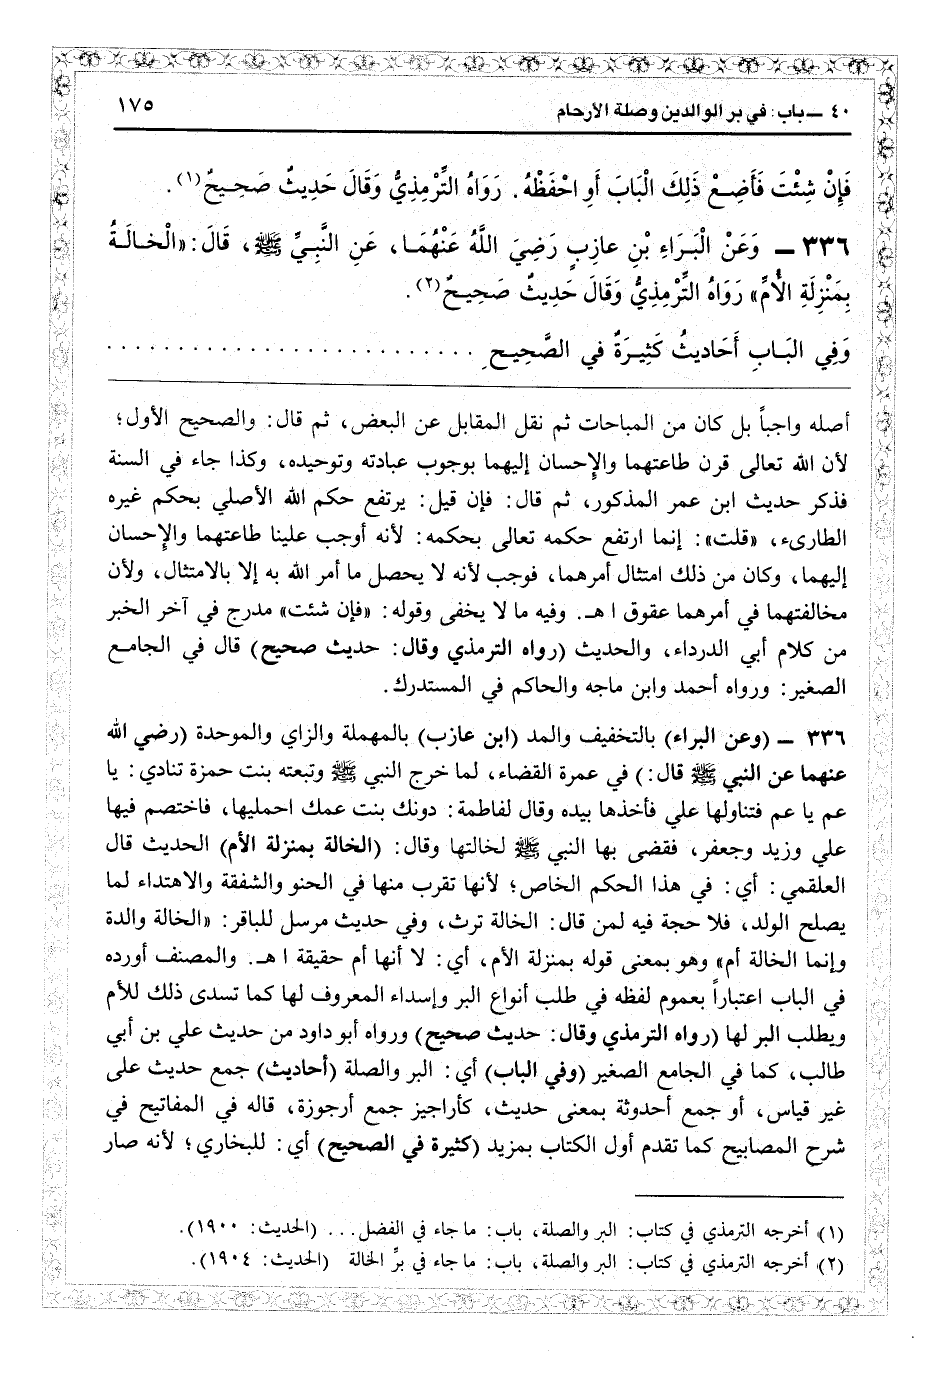 ٤٠ ــ باب: في بر الوالدين وصلة الأرحام ١٧٥
فَإِنْ شِئْتَ فَأَضِعْ ذَلِكَ الْبَابَ أَوِ احْفَظْهُ. رَوَاهُ التِّرْمِذِيُّ وَقَالَ حَدِيثٌ صَحِيحٌ(١).
٣٣٦ ــ وَعَنْ الْبَرَاءِ بْنِ عازِبٍ رَضِيَ اللَّهُ عَنْهُمَا، عَنِ النَّبِيِّ ﷺ، قَالَ: «الْخالَةُ
بِمَنْزِلَةِ الأُمِّ» رَوَاهُ التِّرْمِذِيُّ وَقَالَ حَدِيثٌ صَحِيحٌ(٢).
وَفِي البَابِ أَحَادِيثُ كَثِيرَةٌ في الصَّحِيحِ . . . . . . . . . . . . . . . . . . . . . . . . . .
أصله واجباً بل كان من المباحات ثم نقل المقابل عن البعض، ثم قال: والصحيح الأول؛
لأن الله تعالى قرن طاعتهما والإحسان إليهما بوجوب عبادته وتوحيده، وكذا جاء في السنة
فذكر حديث ابن عمر المذكور، ثم قال: فإن قيل: يرتفع حكم الله الأصلي بحكم غيره
الطارىء، «قلت»: إنما ارتفع حكمه تعالى بحكمه: لأنه أوجب علينا طاعتهما والإحسان
إليهما، وكان من ذلك امتثال أمرهما، فوجب لأنه لا يحصل ما أمر الله به إلا بالامتثال، ولأن
مخالفتهما في أمرهما عقوق ا هـ. وفيه ما لا يخفى وقوله: «فإن شئت» مدرج في آخر الخبر
من كلام أبي الدرداء، والحديث (رواه الترمذي وقال: حديث صحيح) قال في الجامع
الصغير: ورواه أحمد وابن ماجه والحاكم في المستدرك.
٣٣٦ ــ (وعن البراء) بالتخفيف والمد (ابن عازب) بالمهملة والزاي والموحدة (رضي الله
عنهما عن النبي ﷺ قال:) في عمرة القضاء، لما خرج النبي ﷺ وتبعته بنت حمزة تنادي: يا
عم يا عم فتناولها علي فأخذها بيده وقال لفاطمة: دونك بنت عمك احمليها، فاختصم فيها
علي وزيد وجعفر، فقضى بها النبي ﷺ لخالتها وقال: (الخالة بمنزلة الأم) الحديث قال
العلقمي: أي: في هذا الحكم الخاص؛ لأنها تقرب منها في الحنو والشفقة والاهتداء لما
يصلح الولد، فلا حجة فيه لمن قال: الخالة ترث، وفي حديث مرسل للباقر: «الخالة والدة
وإنما الخالة أم» وهو بمعنى قوله بمنزلة الأم، أي: لا أنها أم حقيقة ا هـ. والمصنف أورده
في الباب اعتباراً بعموم لفظه في طلب أنواع البر وإسداء المعروف لها كما تسدى ذلك للأم
ويطلب البر لها (رواه الترمذي وقال: حديث صحيح) ورواه أبو داود من حديث علي بن أبي
طالب، كما في الجامع الصغير (وفي الباب) أي: البر والصلة (أحاديث) جمع حديث على
غير قياس، أو جمع أحدوثة بمعنى حديث، كأراجيز جمع أرجوزة، قاله في المفاتيح في
شرح المصابيح كما تقدم أول الكتاب بمزيد (كثيرة في الصحيح) أي: للبخاري؛ لأنه صار
(١) أخرجه الترمذي في كتاب: البر والصلة، باب: ما جاء في الفضل... (الحديث: ١٩٠٠).
(٢) أخرجه الترمذي في كتاب: البر والصلة، باب: ما جاء في برِّ الخالة (الحديث: ١٩٠٤).